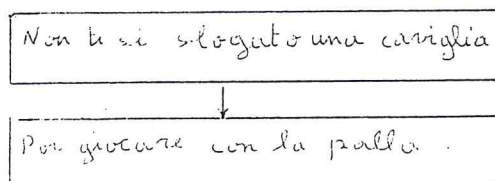 Non ti si slogato una caviglia
Poi giocare con la palla.